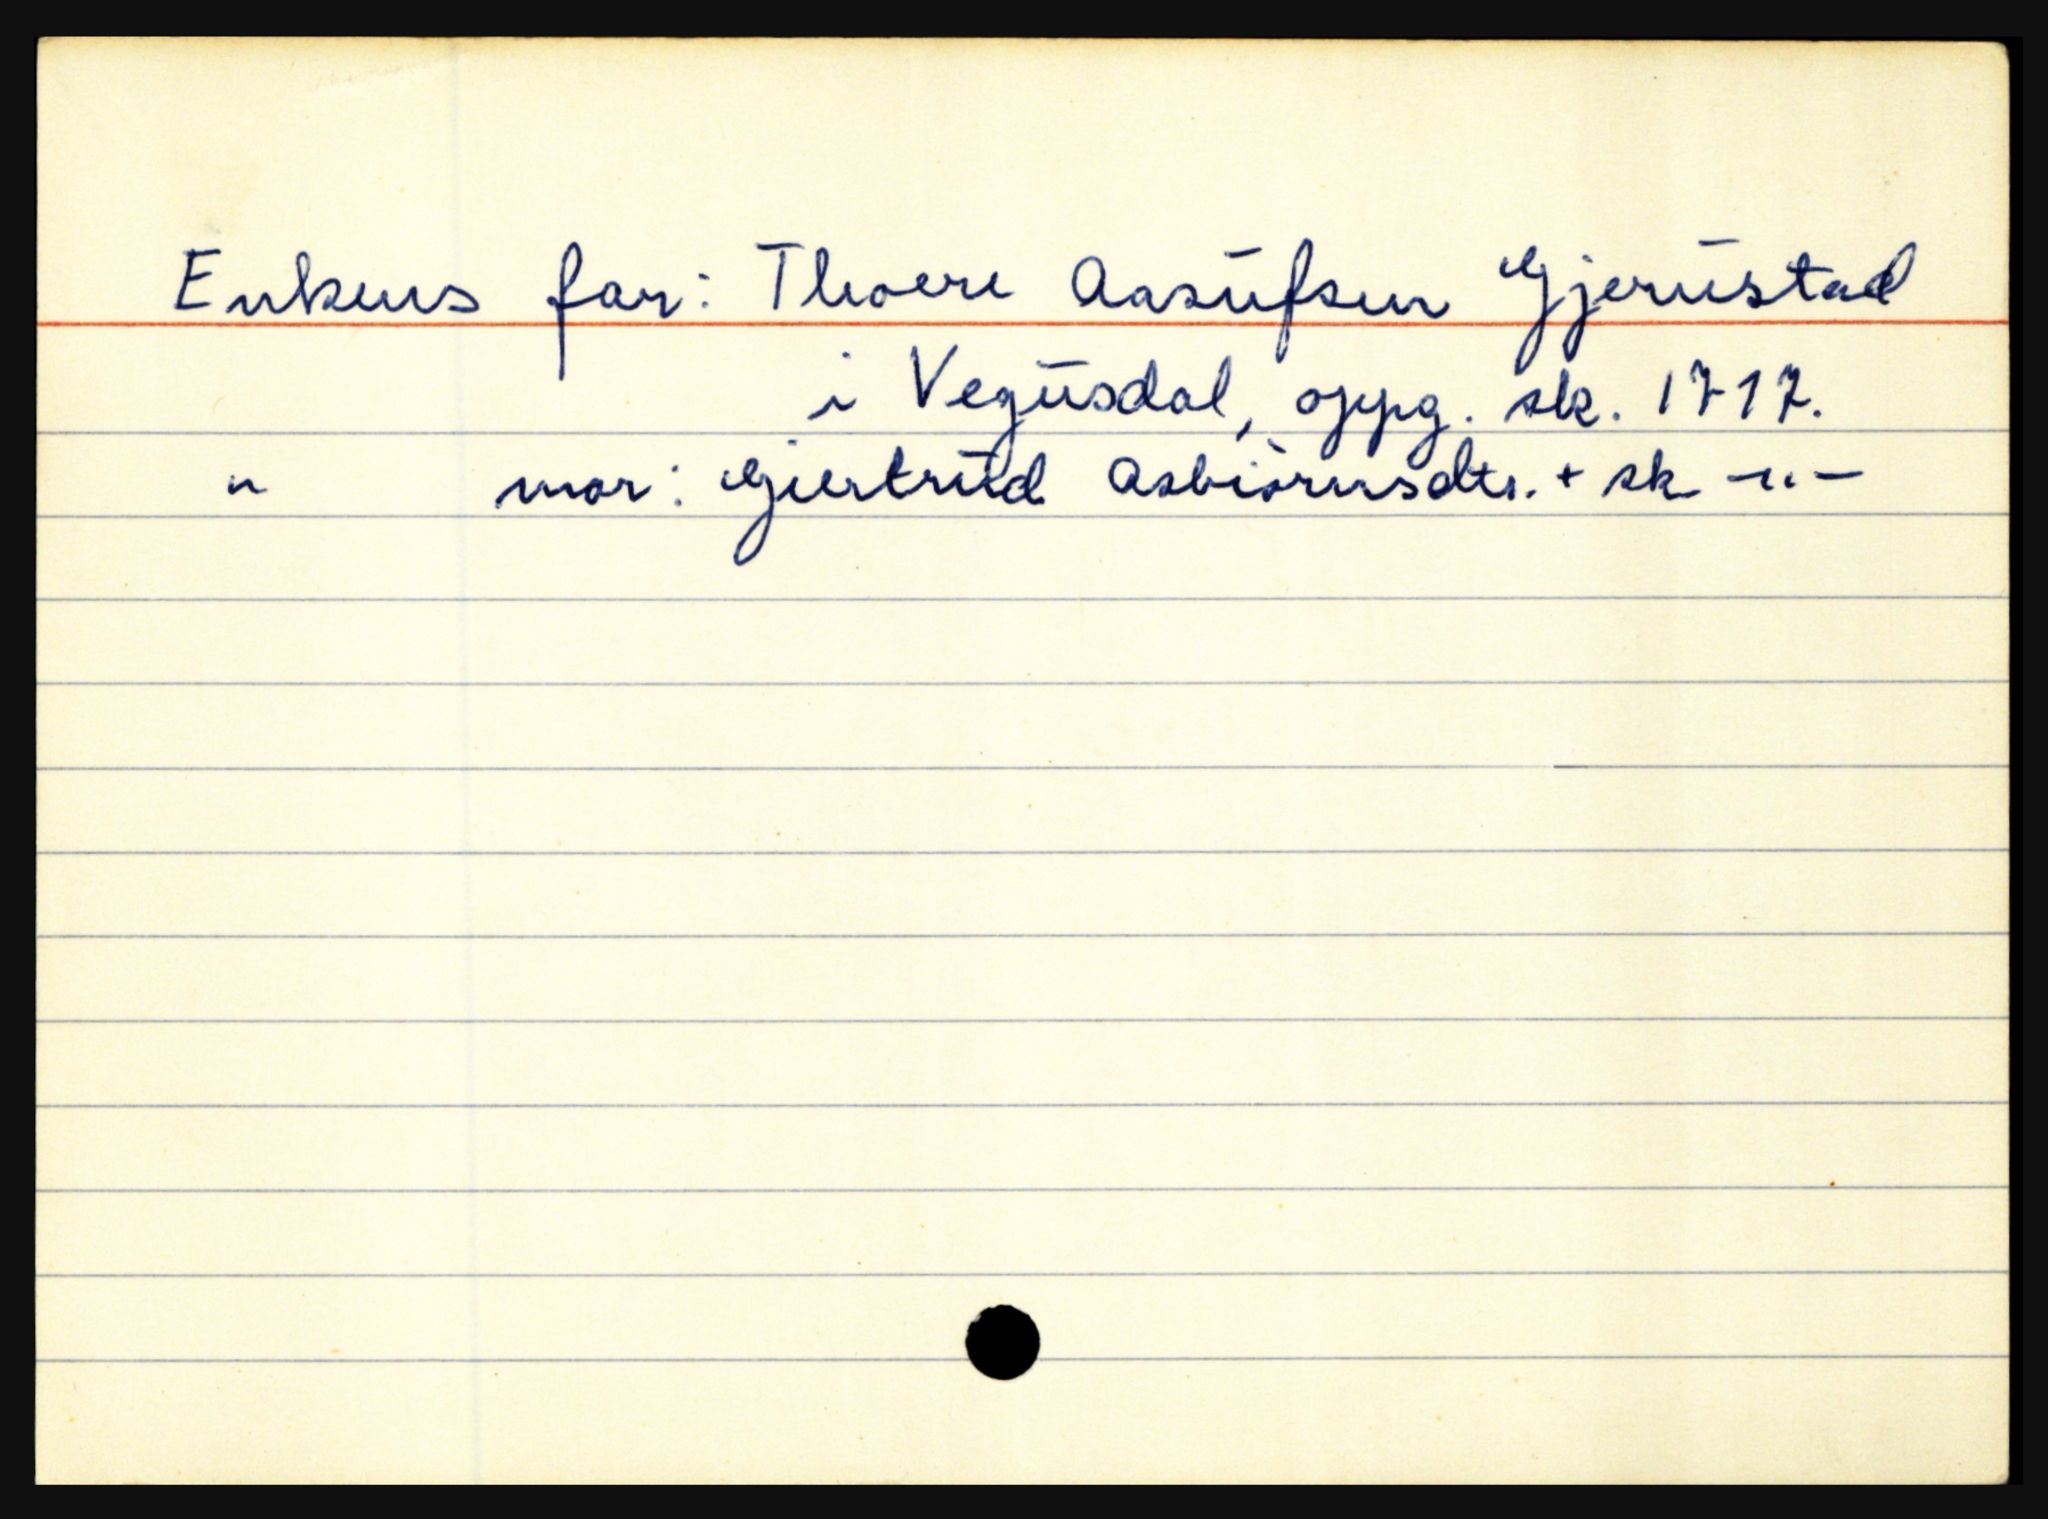 Enkens far: Thoere Aasufsen Gjerustad
i Vegusdal, oppg. sk. 1717.
" mor: Gjertrud Asbiörnsdtr. + sk -"-